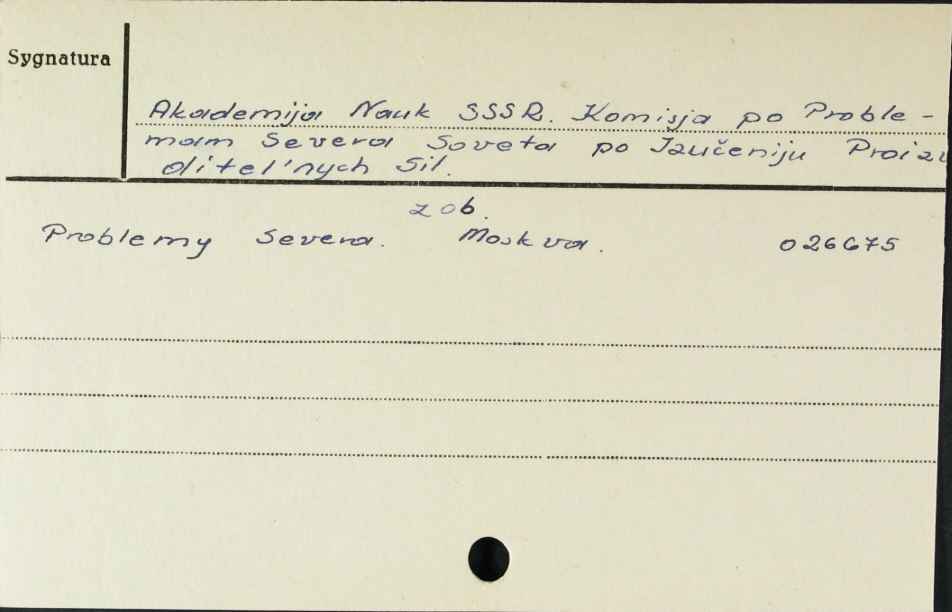 Sygnatura
Akademija Nauk SSSR. Komisja po Proble-
mam Severa Soveta po Izučeniju Proizv
ditel'nych Sil.
zob.
Problemy Severa. Moskva. 026675